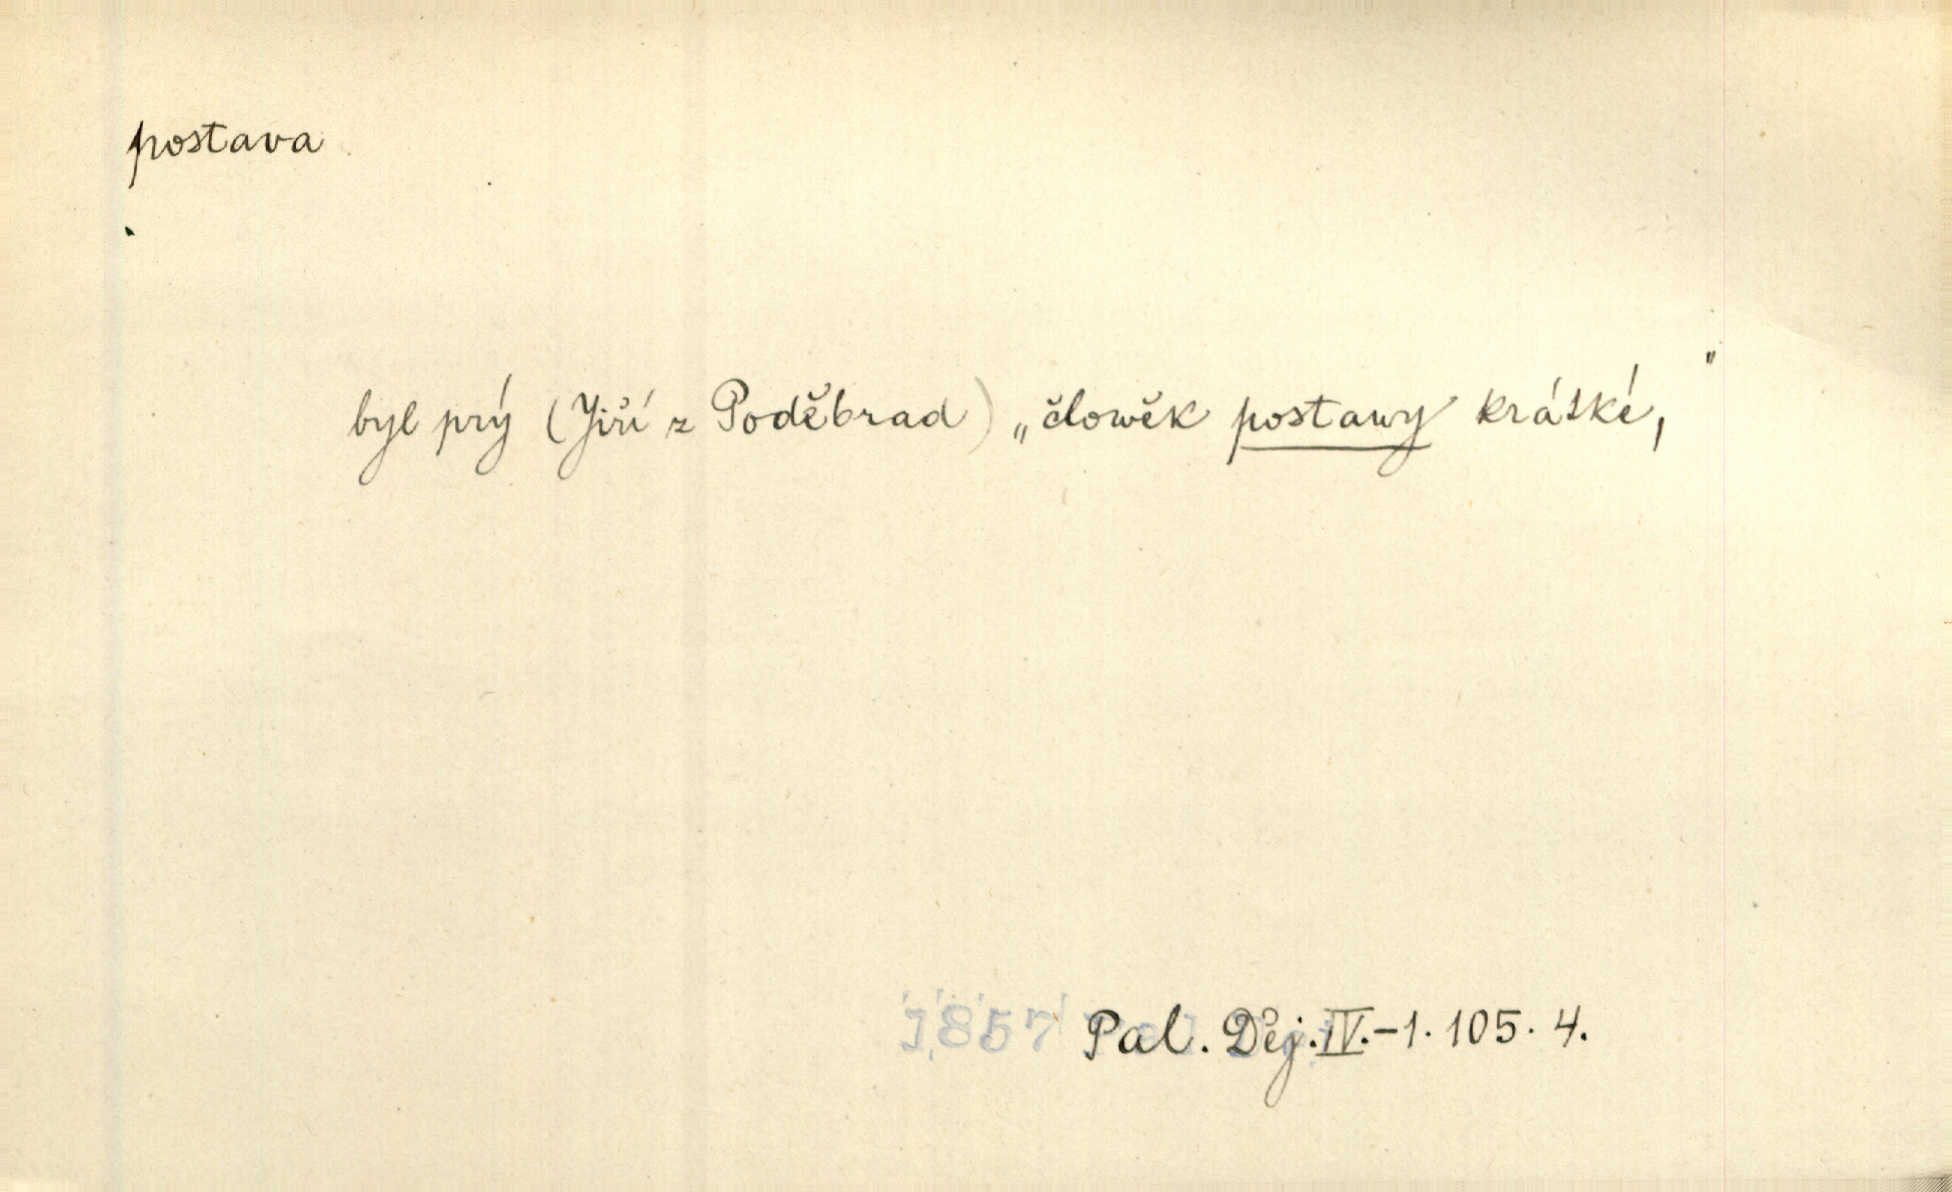 postava
byl prý (Jiří z Poděbrad) „člowěk postawy krátké,"
1857 Pal. Děj. IV.-1. 105. 4.